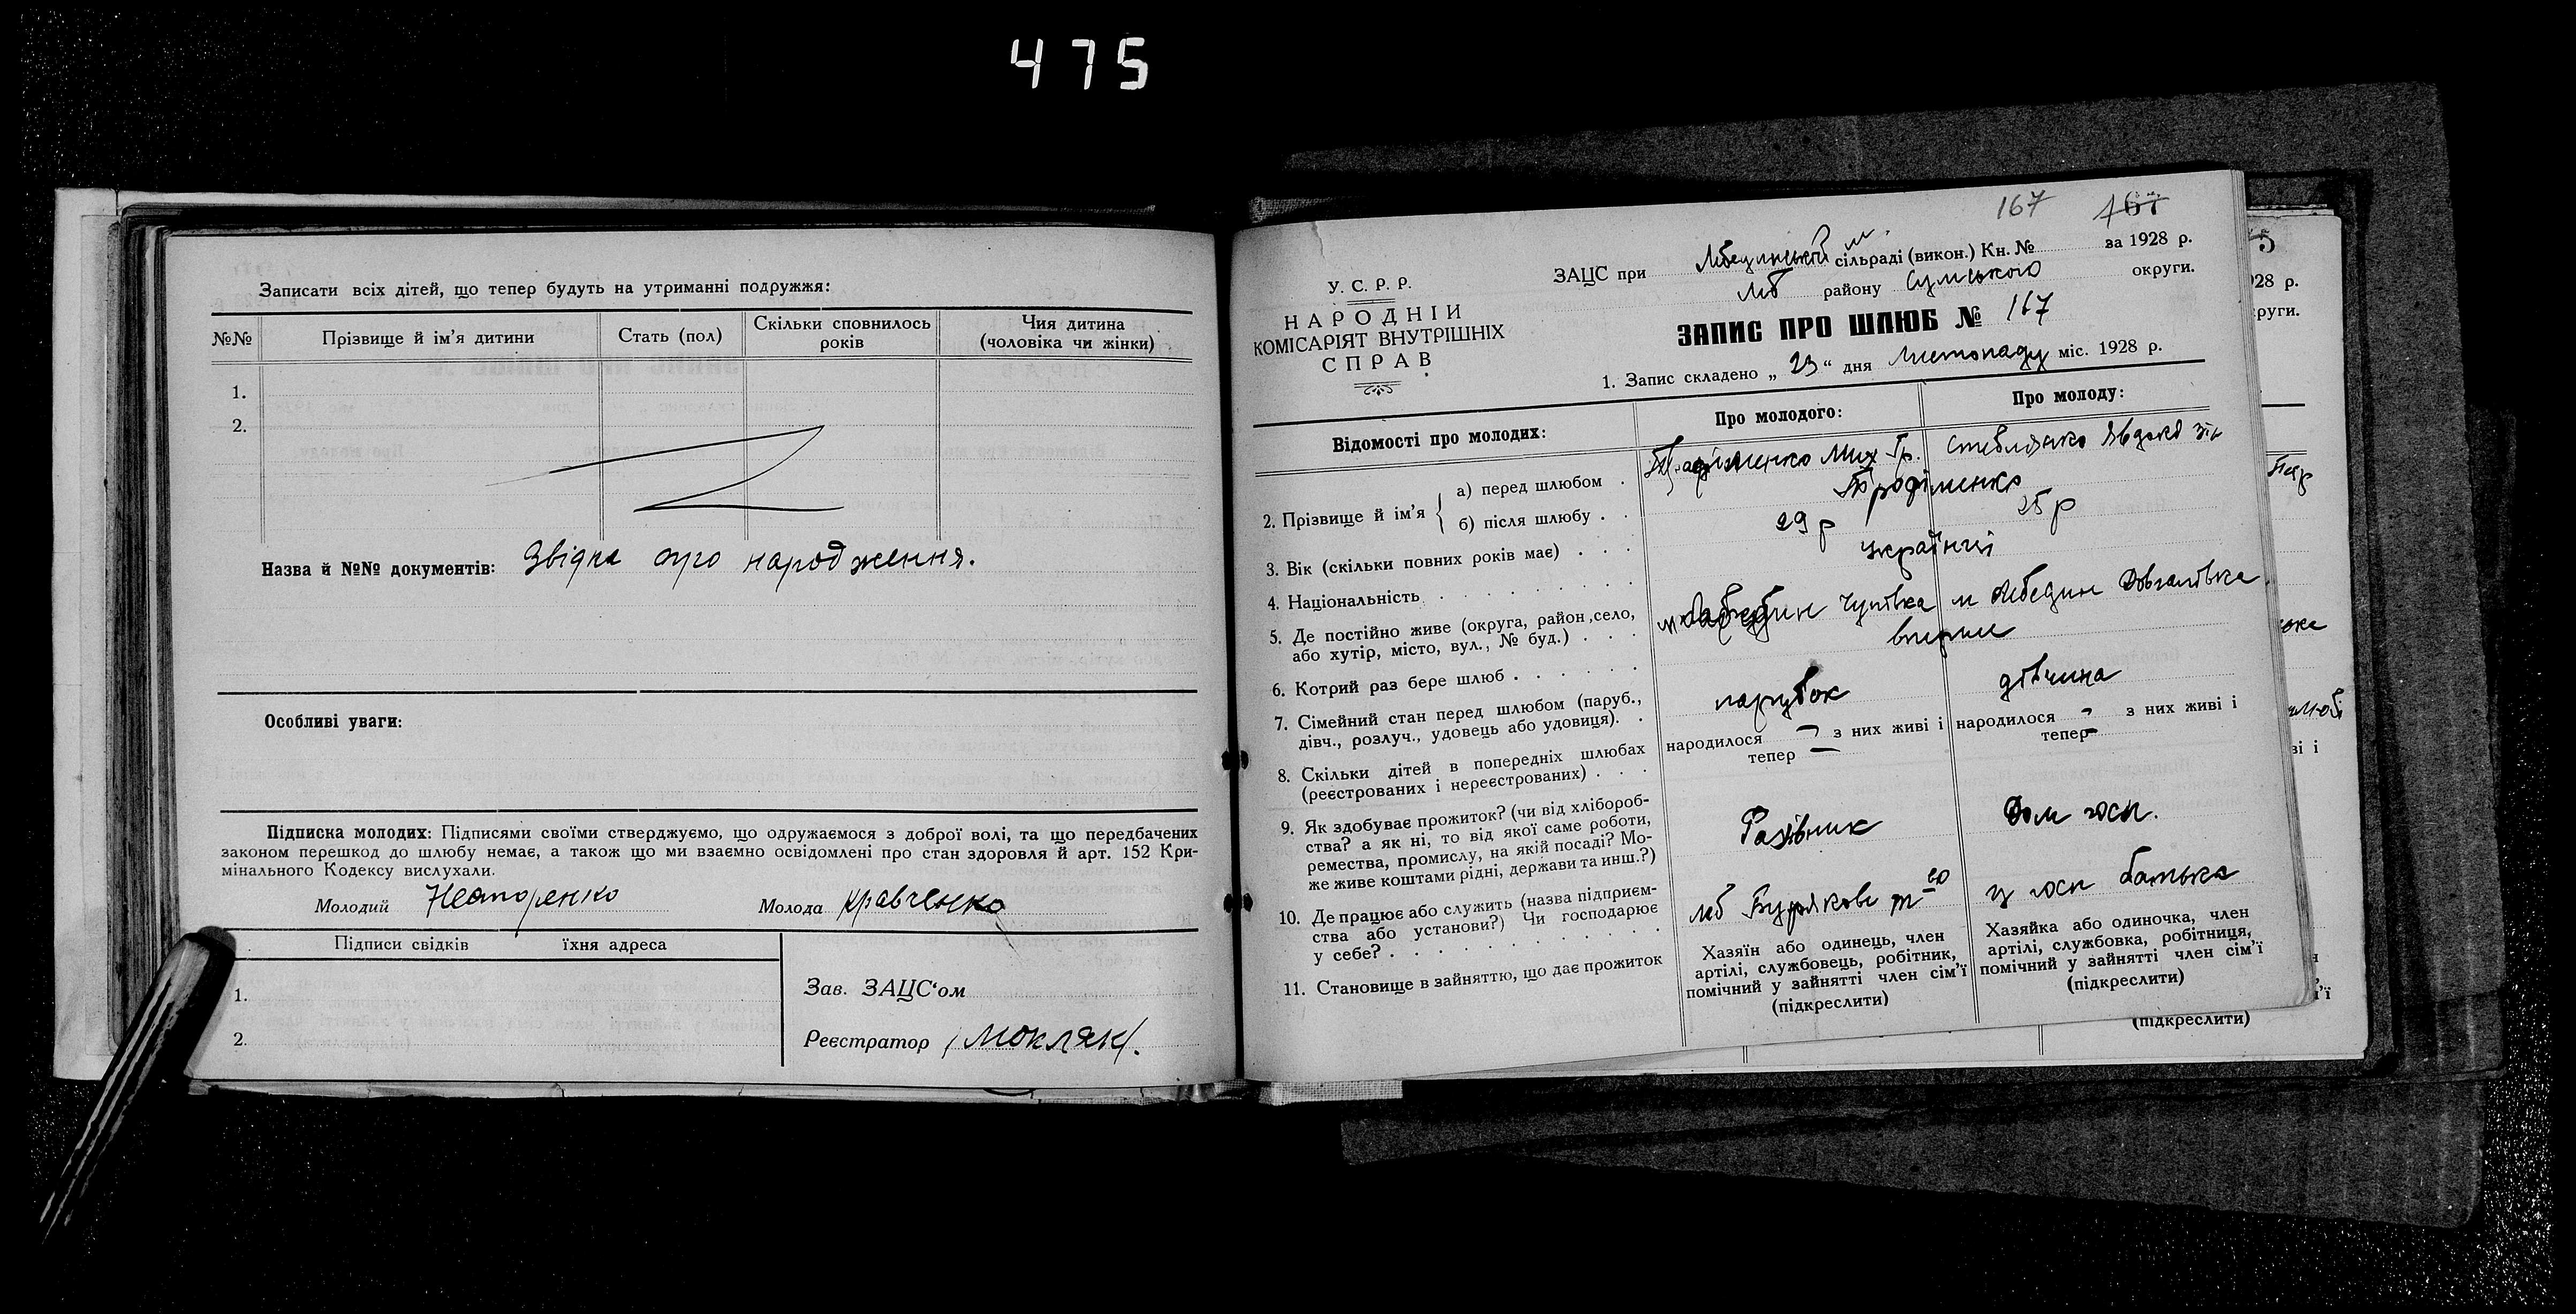 475
Записати всіх дітей, що тепер будуть на утриманні подружжя:
№№ Прізвище й ім'я дитини Стать (пол) Скільки сповнилось років Чия дитина (чоловіка чи жінки)
1.
2.
Назва й №№ документів: Звідка про народження.
Особливі уваги:
Підписка молодих: Підписями своїми стверджуємо, що одружаємося з доброї волі, та що передбачених
законом перешкод до шлюбу немає, а також що ми взаємно освідомлені про стан здоровля й арт. 152 Кри-
мінального Кодексу вислухали.
Молодий Молода Кравченко
Підписи свідків їхня адреса
1.
2.
Зав. ЗАЦС'ом
Реєстратор /Мокляк/.
167 167
У. С. Р. Р.
НАРОДНІЙ
КОМІСАРІЯТ ВНУТРІШНІХ
СПРАВ
ЗАЦС при Лебединській м. сільраді (викон.) Кн. № за 1928 р.
Леб району Сумського округи.
ЗАПИС ПРО ШЛЮБ № 167
1. Запис складено „ 23 “ дня Листопаду міс. 1928 р.
Відомості про молодих: Про молодого: Про молоду:
2. Прізвище й ім'я
а) перед шлюбом Мих Гр. Стеблянко Явдокі
б) після шлюбу
3. Вік (скільки повних років має) 29 р 25 р
4. Національність українці
5. Де постійно живе (округа, район, село,
або хутір, місто, вул., № буд.) м Лебедин м Лебедин Довгалівка
6. Котрий раз бере шлюб вперше
7. Сімейний стан перед шлюбом (паруб.,
дівч., розлуч., удовець або удовиця). парубок дівчина
8. Скільки дітей в попередніх шлюбах
(реєстрованих і нереєстрованих)
народилося – з них живі і
тепер –
народилося – з них живі і
тепер –
9. Як здобуває прожиток? (чи від хлібороб-
ства? а як ні, то від якої саме роботи,
ремества, промислу, на якій посаді? Мо-
же живе коштами рідні, держави та инш.?)
Рахівник Дом госп.
10. Де працює або служить (назва підприєм-
ства або установи?) Чи господарює
у себе?
Леб Бурякове т-во у госп батька
11. Становище в зайняттю, що дає прожиток
Хазяїн або одинець, член
артілі, службовець, робітник,
помічний у зайнятті член сім'ї
(підкреслити)
Хазяйка або одиночка, член
артілі, службовка, робітниця,
помічний у зайнятті член сім'ї
(підкреслити)
(підкреслити)